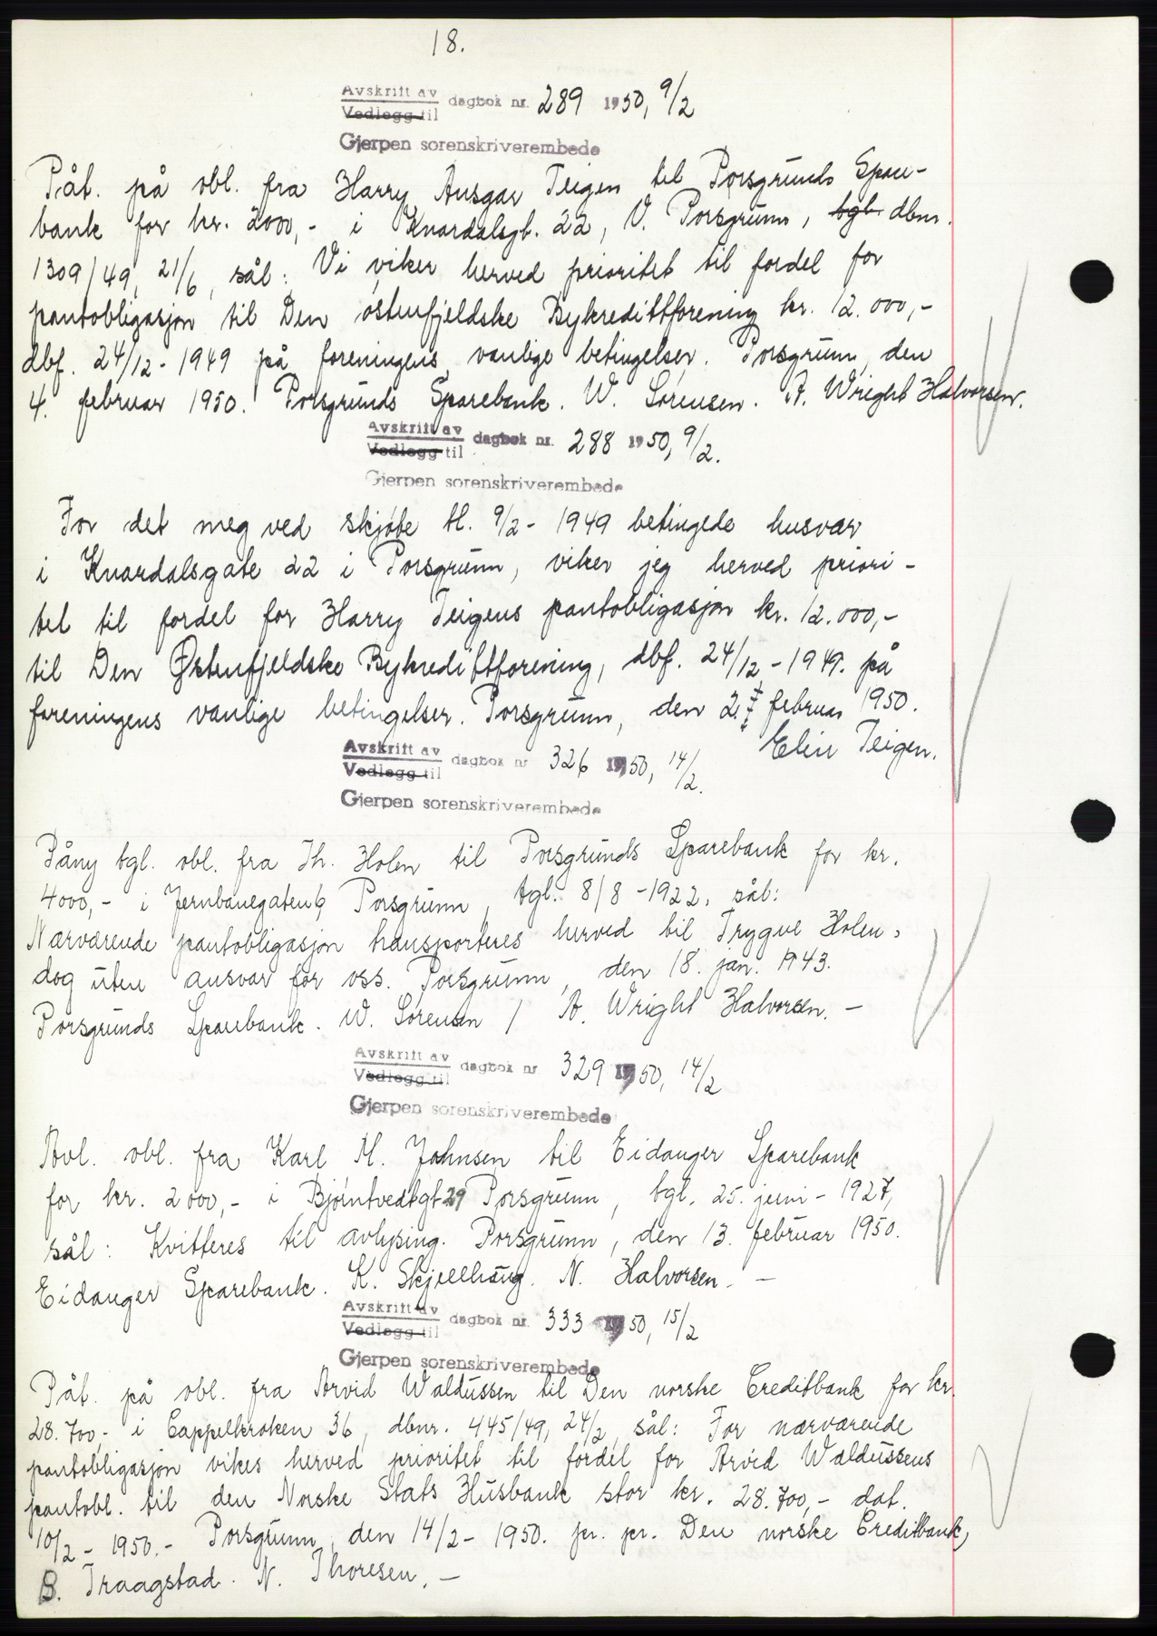 18.
Avskrift av
Vedlegg til dagbok nr. 289 1950, 9/2
Gjerpen sorenskriverembede
Påt. på obl. fra Harry Ansgar Teigen til Porsgrunds Spare-
bank for kr. 2000,- i Knardalsgt. 22, V. Porsgrunn, tgl. dbnr.
1309/49, 21/6, sål: Vi viker herved prioritet til fordel for
pantobligasjon til Den østenfjeldske Bykredittforening kr. 12.000,-
dbf. 24/12-1949 på foreningens vanlige betingelser. Porsgrunn, den
4. februar 1950. Porsgrunds Sparebank. W. Sørensen. A. Wright Halvorsen.
Avskrift av
Vedlegg til dagbok nr. 288 1950, 9/2.
Gjerpen sorenskriverembede
For det meg ved skjøte tl. 9/2-1949 betingede husvær
i Knardalsgate 22 i Porsgrunn, viker jeg herved priori-
tet til fordel for Harry Teigens pantobligasjon kr. 12.000,-
til Den Østenfjeldske Bykredittforening, dbf. 24/12-1949. på
foreningens vanlige betingelser. Porsgrunn, den 2. februar 1950.
Elin Teigen.
Avskrift av
Vedlegg til dagbok nr 326 1950, 14/2.
Gjerpen sorenskriverembede
Påny tgl. obl. fra Th. Holen til Porsgrunds Sparebank for kr.
4000,- i Jernbanegaten 6, Porsgrunn, tgl. 8/8-1922, såt:
Nærværende pantobligasjon transporteres herved til Trygve Holen,
dog uten ansvar for oss. Porsgrunn, den 18. jan. 1943.
Porsgrunds Sparebank. W. Sørensen / A. Wright Halvorsen. -
Avskrift av
Vedlegg til dagbok nr 329 1950, 14/2
Gjerpen sorenskriverembede
Avl. obl. fra Karl M. Johnsen til Eidanger Sparebank
for kr. 2000,- i Bjørntvedtgt 29 Porsgrunn, tgl. 25. juni - 1927,
sål: Kvitteres til avlysing. Porsgrunn, den 13. februar 1950.
Eidanger Sparebank. K. Skjelhaug. N. Halvorsen. -
Avskrift av
Vedlegg til dagbok nr. 333 1950, 15/2
Gjerpen sorenskriverembede
Påt. på obl. fra Arvid Waldussen til Den norske Creditbank for kr.
28.700,- i Cappelkroken 36, dbnr. 445/49, 24/2, sål: For nærværende
pantobligasjon vikes herved prioritet til fordel for Arvid Waldussens
pantobl. til den Norske Stats Husbank stor kr. 28.700,- dat.
10/2-1950.- Porsgrunn, den 14/2-1950. pr. pr. Den norske Creditbank,
B. Traagstad. N. Thoresen. -